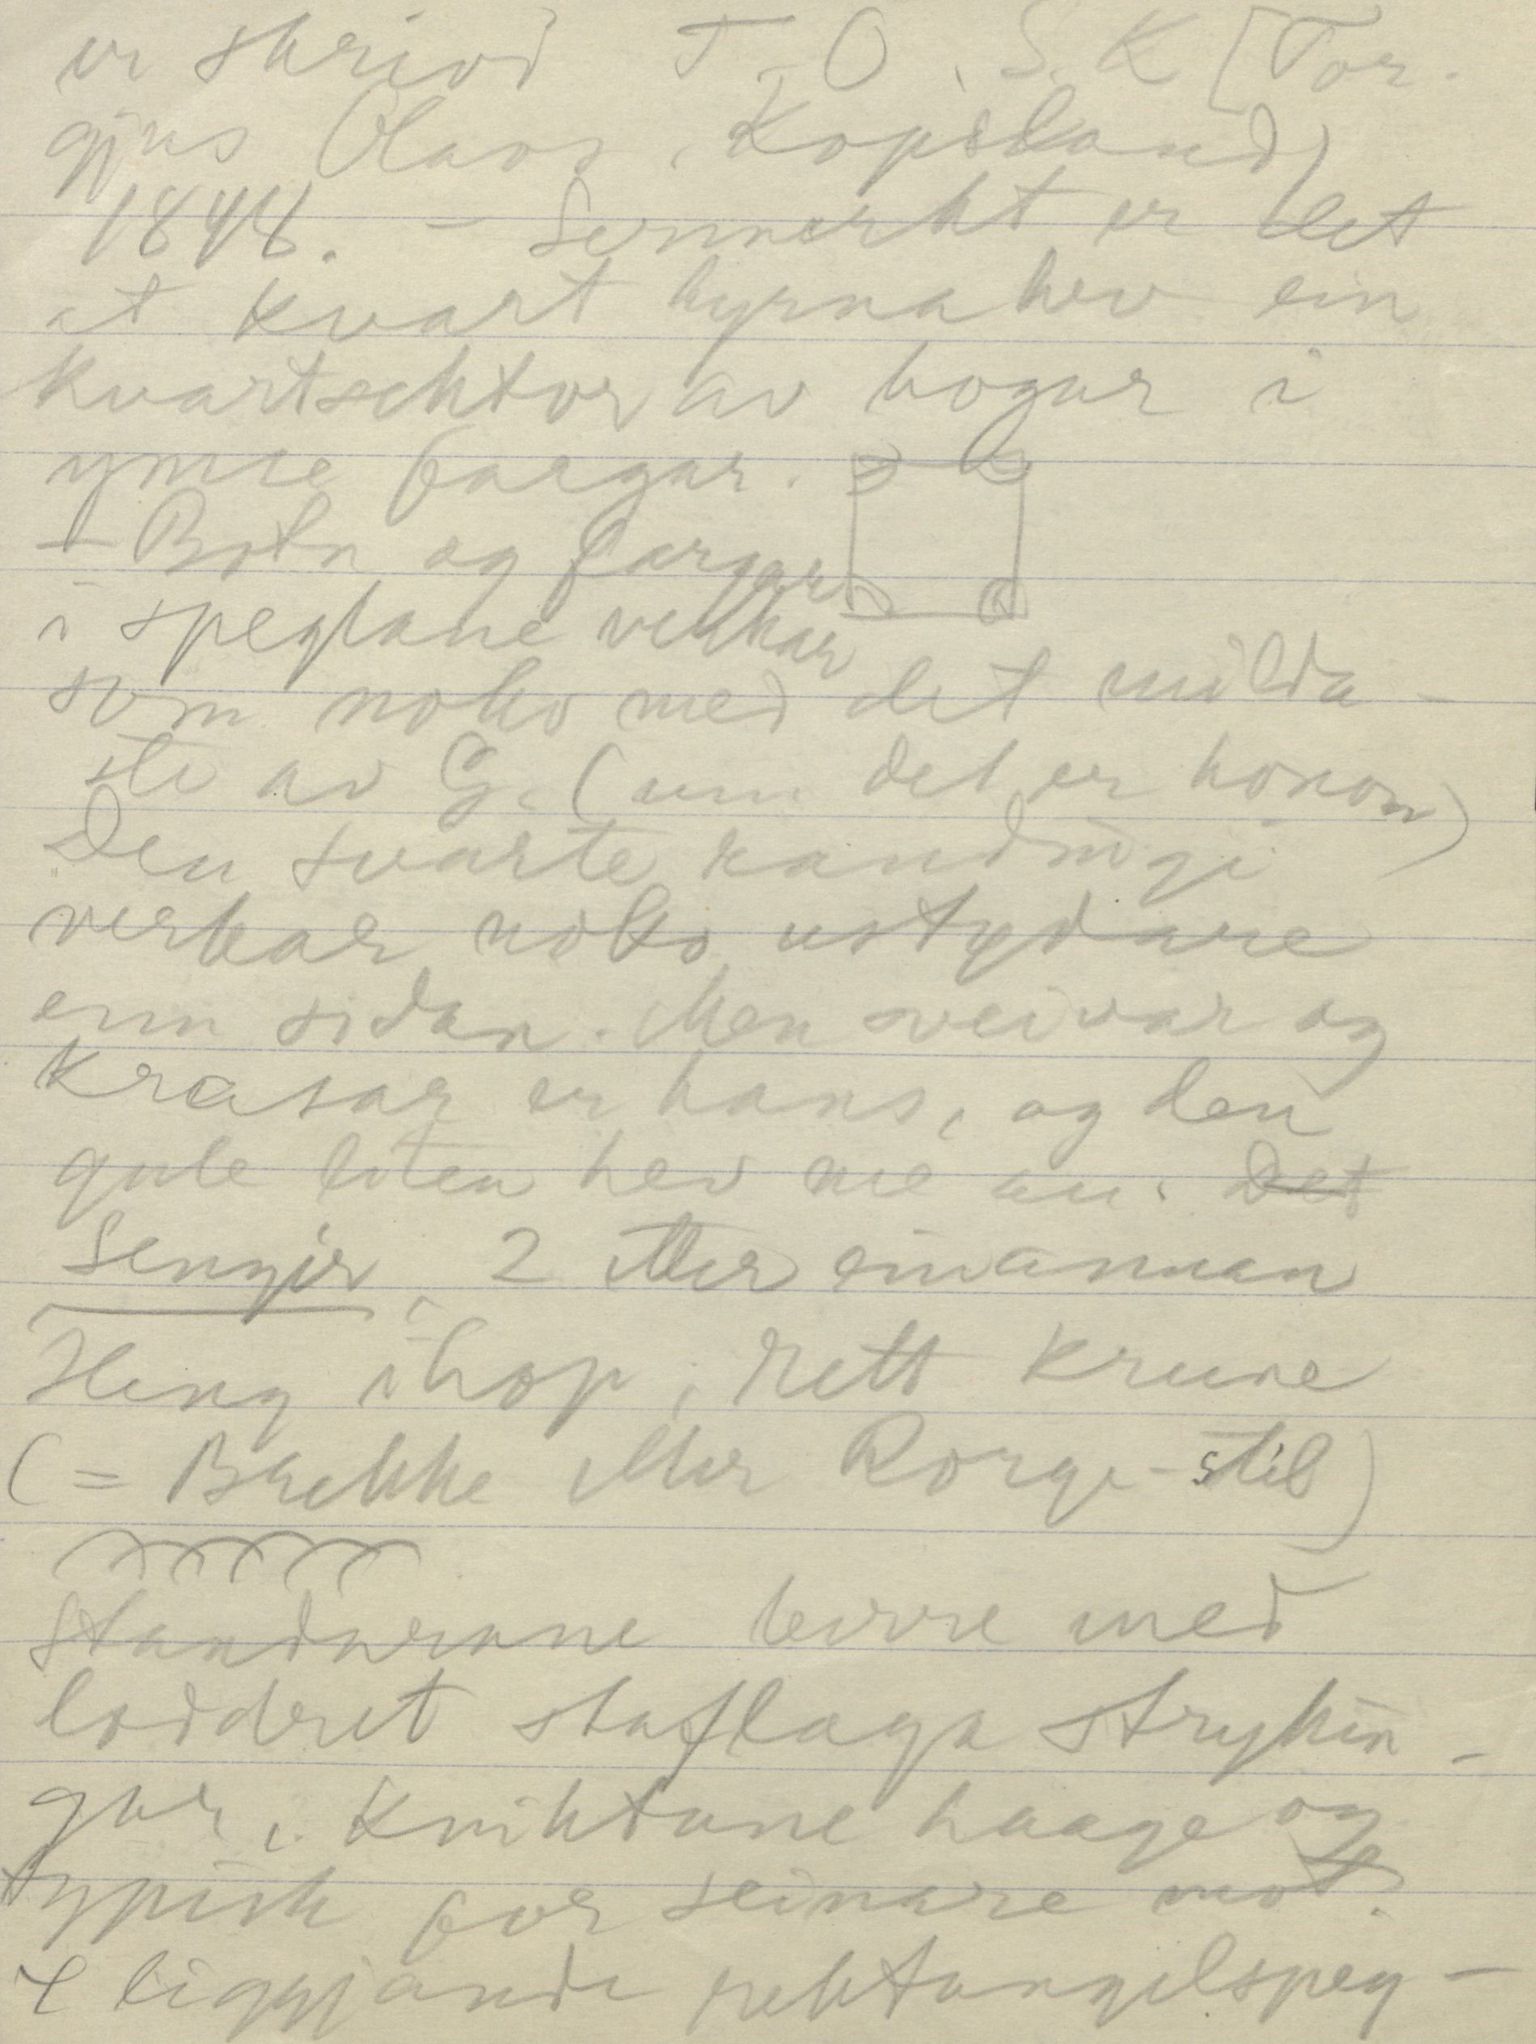 er skrivd T. O. S. K [Tor-
gjus Olavs. Kopsland)
1848. - Sermerkt er det
at kvart hyrna hev ein
kvartsektor av bogar i
ymse fargar.
- Botn og fargar
i speglane verkar
som noko med det milda-
ste av G. (um det er honom)
Den svarte randingi
verkar noko ustydare
enn sidan. Men sveivar og
krasar er hans, og den
gule liten hev me au. Det
Sengjer, 2 etter einannan
Heng ihop, nett krune
(= Brekke eller Borge-stil)
Standarane berre med
loddret staflaga strykin-
gar. Kniktane haage og
typisk for seinare mot.
4 liggjande rektangelspeg-